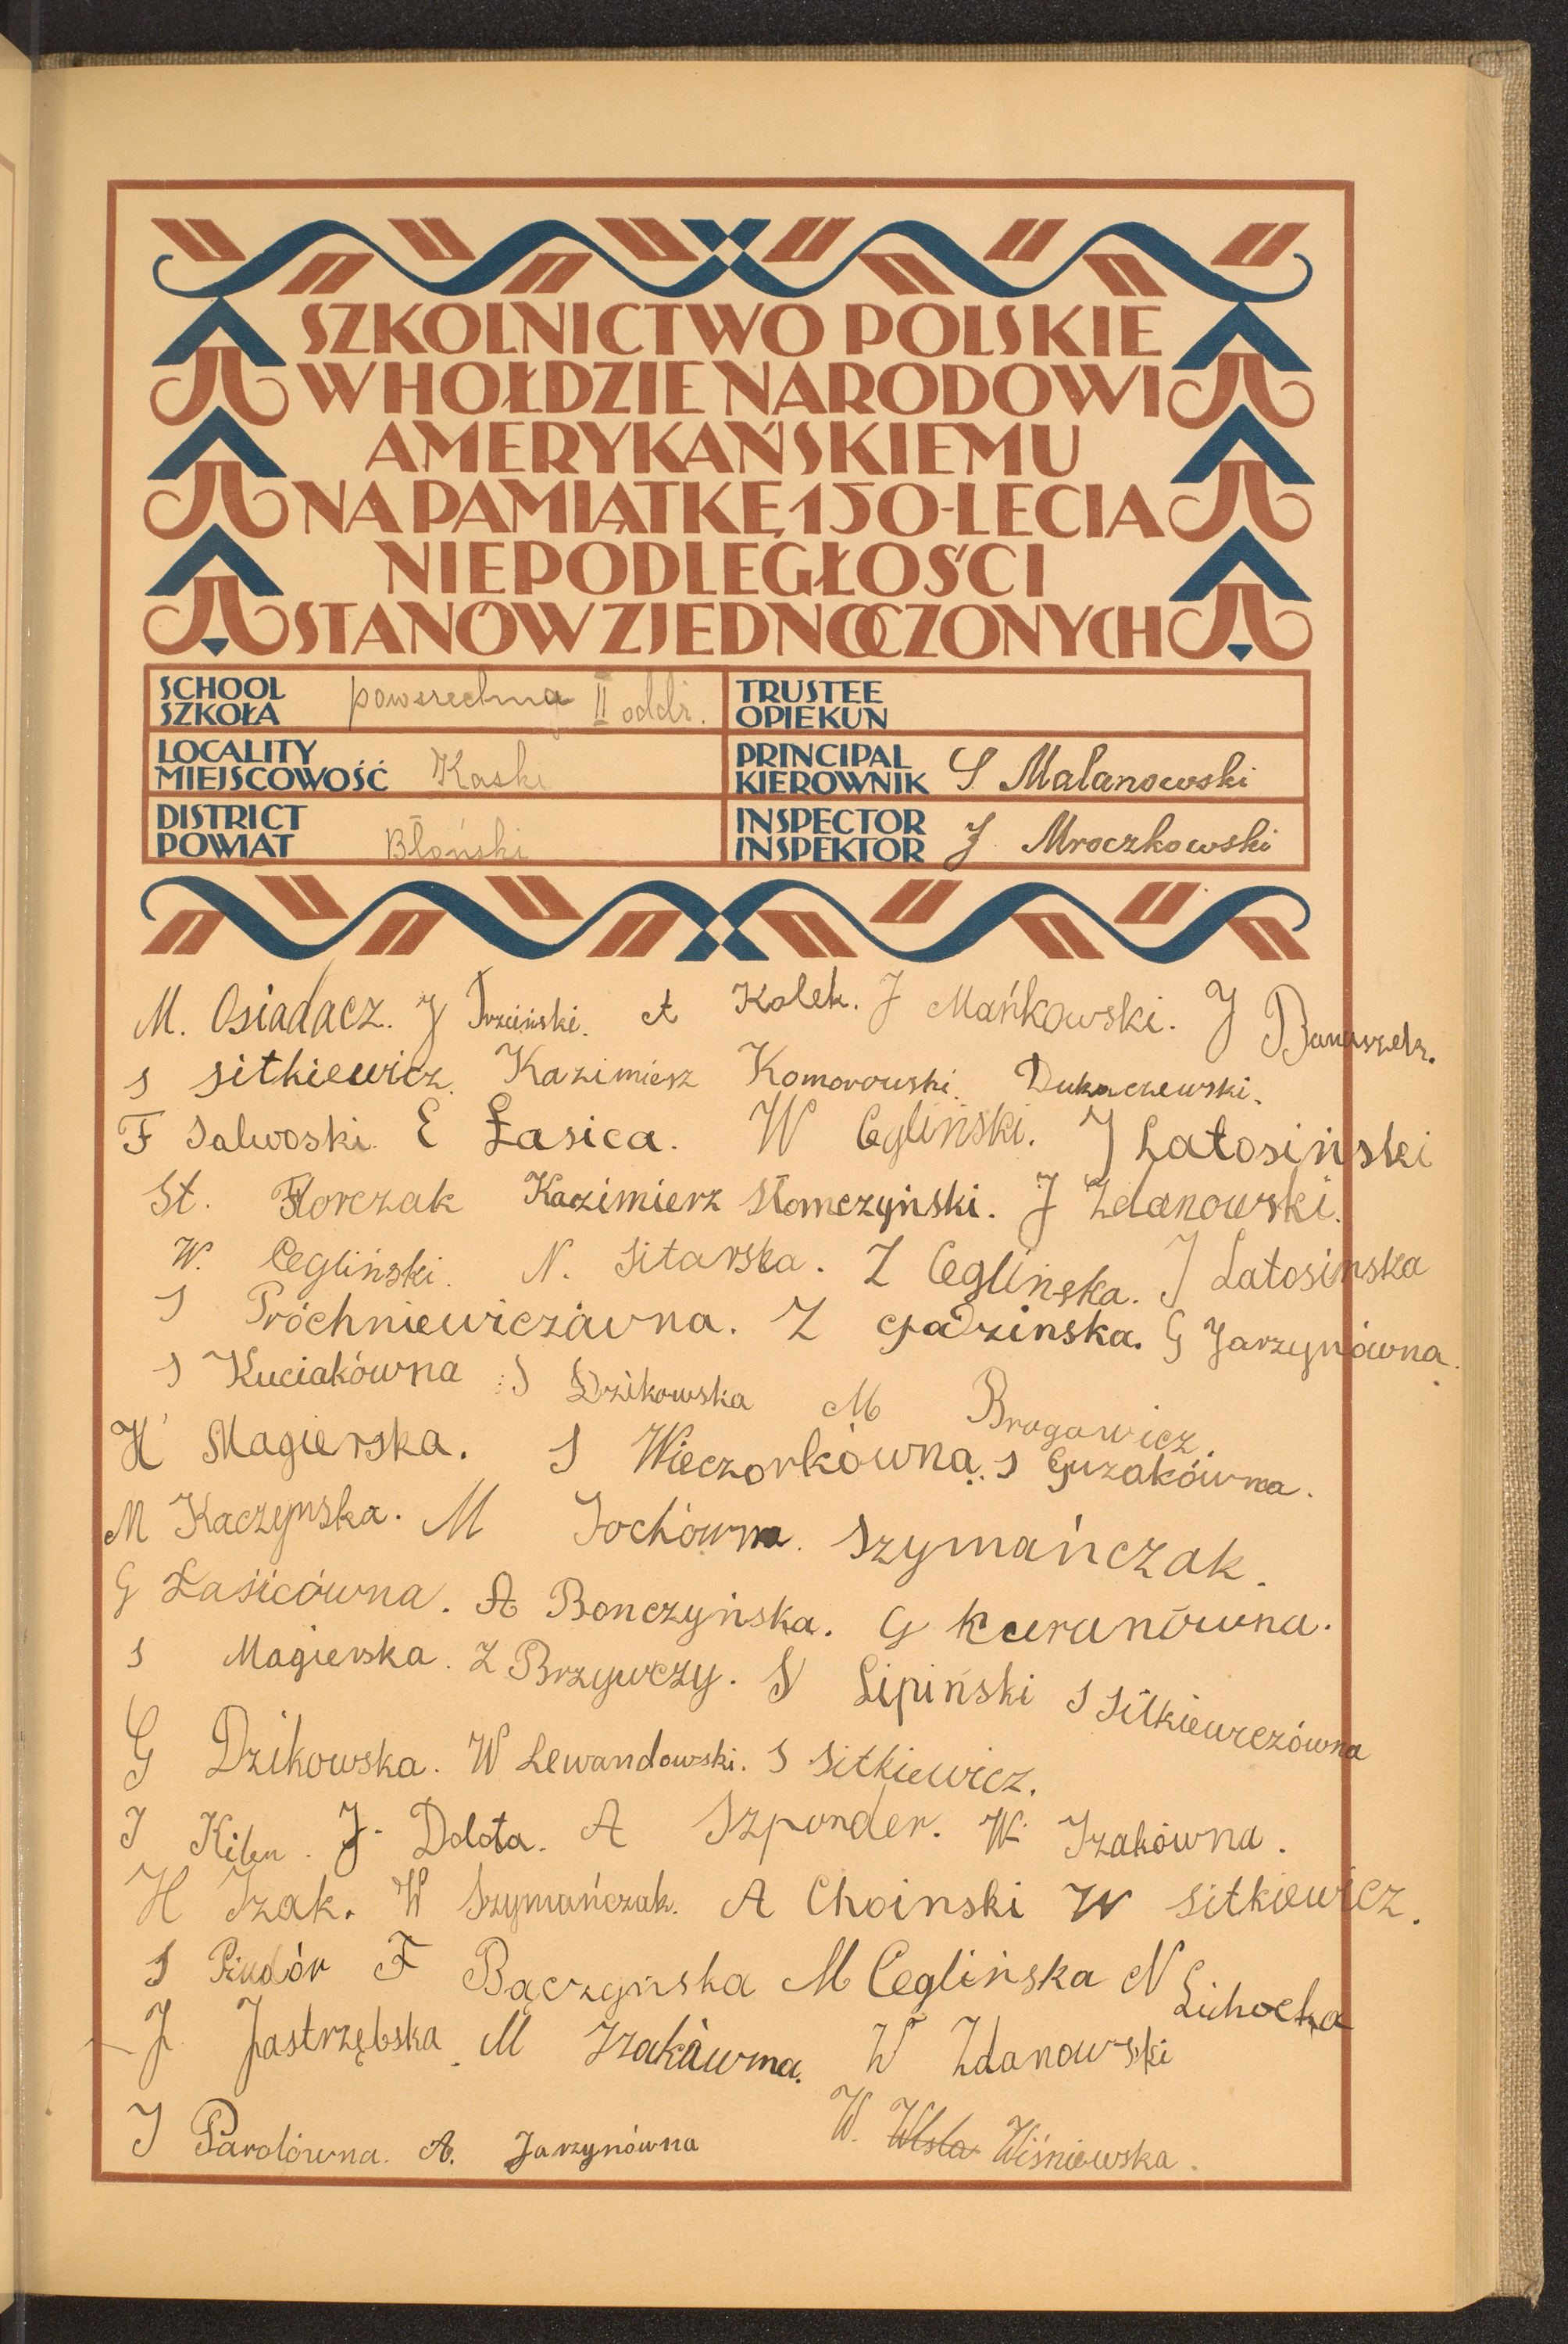 SZKOLNICTWO POLSKIE
W HOŁDZIE NARODOWI
AMERYKAŃSKIEMU
NA PAMIĄTKĘ 150-LECIA
NIEPODLEGŁOŚCI
STANÓW ZJEDNOCZONYCH
SCHOOL
SZKOŁA powszechna II oddz.
TRUSTEE
OPIEKUN
LOCALITY
MIEJSCOWOŚĆ Kaski
PRINCIPAL
KIEROWNIK S Malanowski
DISTRICT
POWIAT Błoński
INSPECTOR
INSPEKTOR J Mroczkowski
M. Osiadacz. J Trzciński. A Kolek. J Mańkowski. J Banaszek.
S Sitkiewicz. Kazimierz Komorowski. Dukaczewski.
F Salwoski. E Łasica. W Cegliński. J Latosiński
St. Florczak Kazimierz Słomczyński. J Zdanowski.
W. Cegliński. N. Sitarska. Z Ceglińska. J Latosinska
S Próchniewiczówna. Z Gadzinska. G Jarzynówna.
S Kuciakówna S Dzikowska M Brogowicz.
H Magierska. S Wieczorkówna. S Guzakówna.
M Kaczynska. M Jochówna. Szymańczak.
G Łasicówna. A Bonczyńska. G Kuranówna.
S Magierska. Z Brzywczy. S Lipiński S Sitkiewiczówna
G Dzikowska. W Lewandowski. S Sitkiewicz.
J Kilen. J. Dolota. A Szponder. W. Izakówna.
H Izak. W Szymańczak. A Choinski W Sitkiewicz.
S Piudór F Bączyńska M Ceglińska N Lichocka
J Jastrzębska. M Izakówna. W Zdanowski
J Parolówna. A. Jarzynówna W. Wisla Wiśniewska.